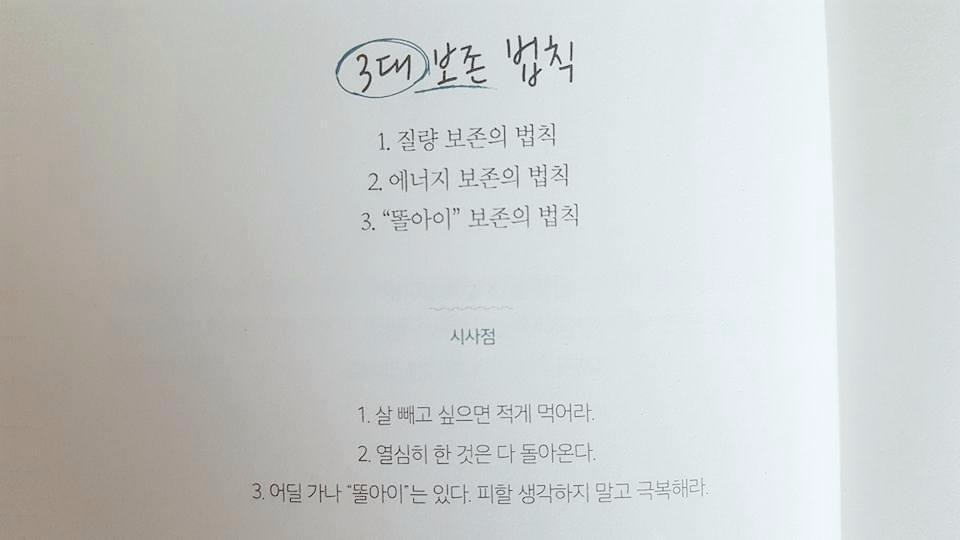 3대 보존 법칙
1. 질량 보존의 법칙
2. 에너지 보존의 법칙
3. “똘아이” 보존의 법칙
시사점
1. 살 빼고 싶으면 적게 먹어라.
2. 열심히 한 것은 다 돌아온다.
3. 어딜 가나 “똘아이”는 있다. 피할 생각하지 말고 극복해라.